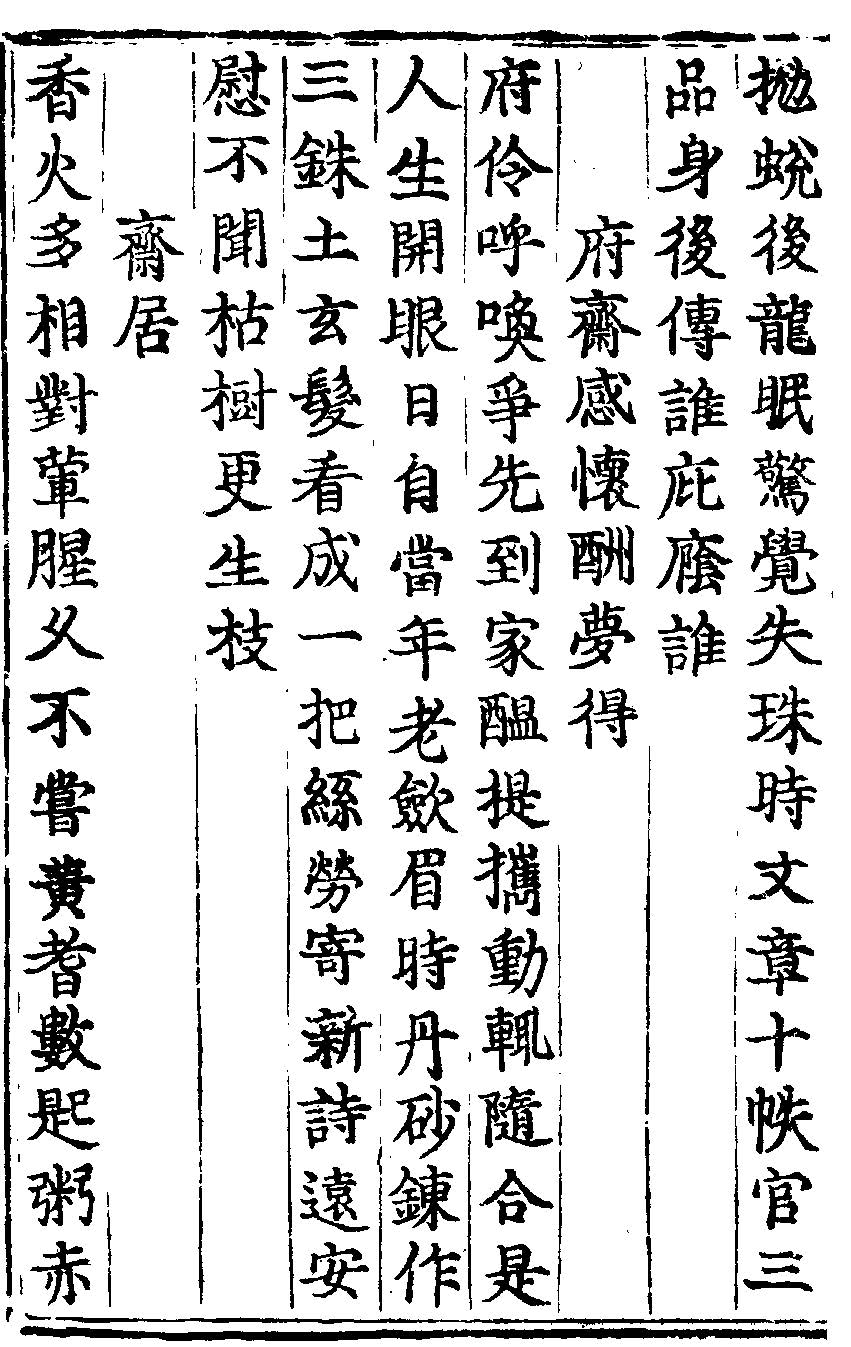 拋蛻後龍眠驚覺失珠時文章十帙官三
品身後傳誰庇廕誰
府齋感懷酬夢得
府伶呼喚爭先到家醖提攜動輒隨合是
人生開眼日自當年老斂眉時丹砂鍊作
三銖土玄髮看成一把絲勞寄新詩遠安
慰不聞枯樹更生枝
齋居
香火多相對葷腥乆不嘗黃耆數匙粥赤